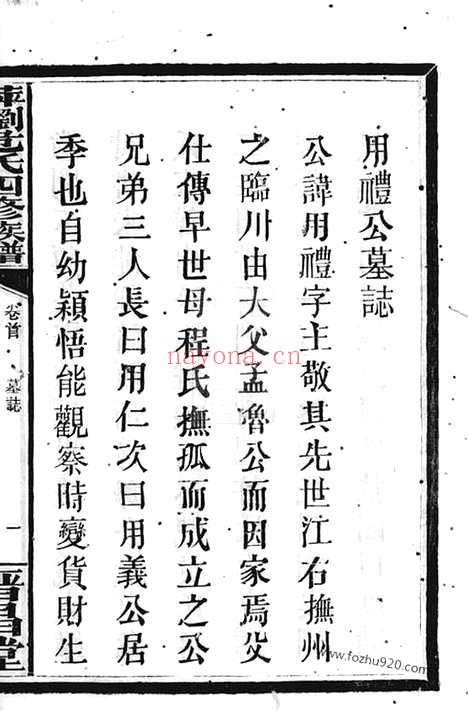 用禮公墓誌
公諱用禮字主敬其先世江右撫州
之臨川由大父孟魯公而因家焉父
仕傳早世母程氏撫孤而成立之公
兄弟三人長曰用仁次曰用義公居
季也自幼穎悟能觀察時變貨財生
劉氏四修族譜
卷首
墓誌
一
nayona.cn
www.fozhu920.com